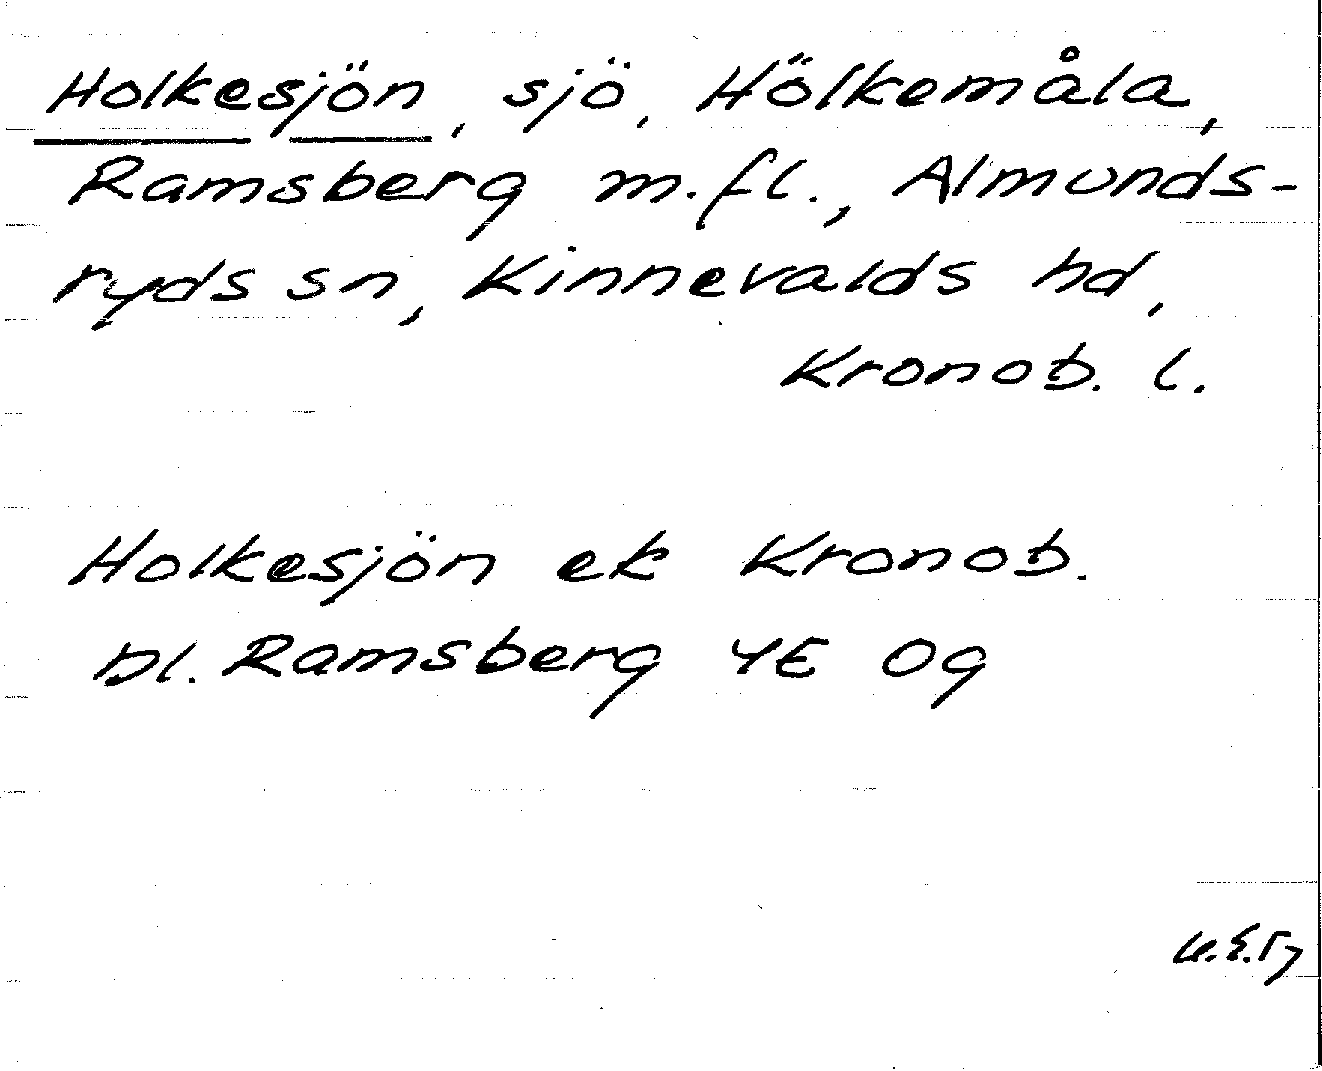 Holkesjön, sjö, Hölkemåla,
Ramsberg m.fl., Almunds-
ryds sn, Kinnevalds hd,
Kronob. l.
Holkesjön ek Kronob.
bl. Ramsberg 4E 0g